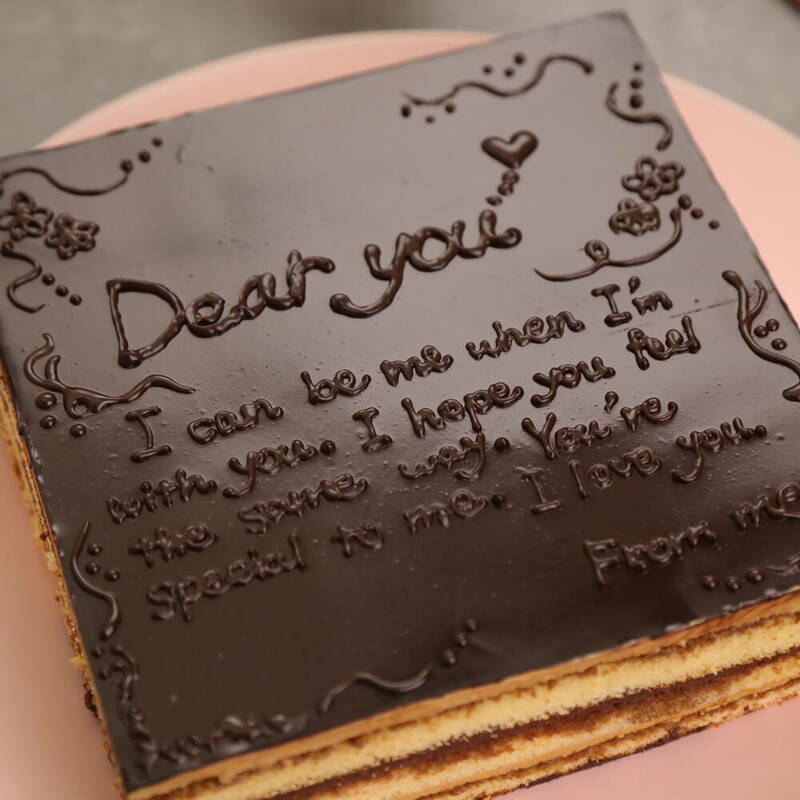 Dear you
I can be me when I'm
with you. I hope you feel
the same way. You're
special to me. I love you.
From me